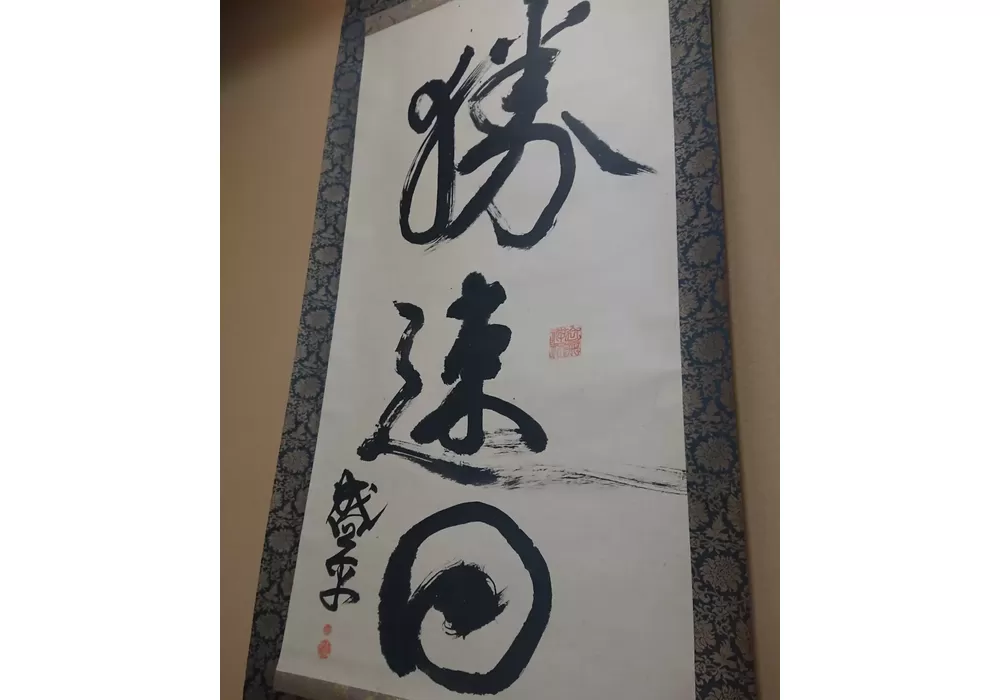 勝速日
盛平